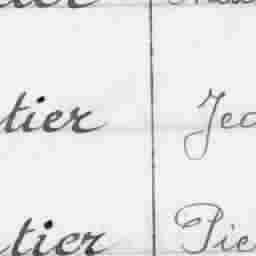 tier Jea
tier Pie